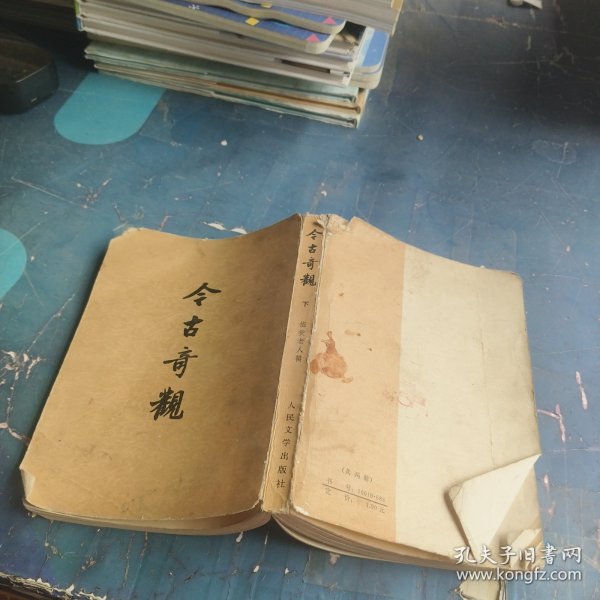 今古奇觀
今古奇觀
下
抱瓮老人輯
人民文学出版社
(共两册)
书号:10019·689
定价:1.90元
孔夫子旧书网
www.kongfz.com